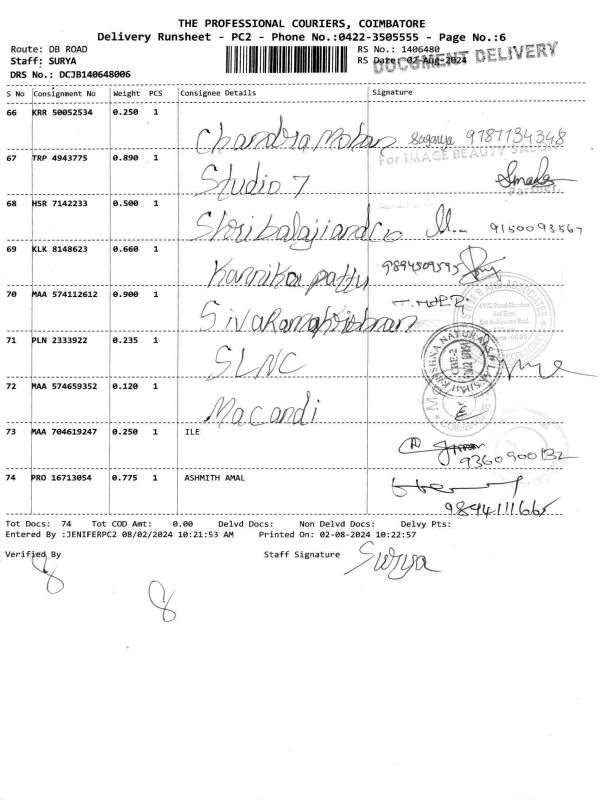 THE PROFESSIONAL COURIERS, COIMBATORE
Delivery Runsheet - PC2 - Phone No.:0422-3505555 - Page No.:6
Route: DB ROAD RS No.: 1406480
Staff: SURYA RS Date: 02-Aug-2024
DOCUMENT DELIVERY
DRS No.: DCJB140648006
S No Consignment No Weight PCS Consignee Details Signature
66 KRR 50052534 0.250 1
Chandra Mohan Suganya 9787734348
For IMAGE BEAUTY
67 TRP 4943775 0.890 1
Studio 7
Partner
68 HSR 7142233 0.500 1
Shri balaji and co 9150093567
69 KLK 8148623 0.660 1
Kannika pattu 9894509595
70 MAA 574112612 0.900 1
Sivaramakrishnan
71 PLN 2333922 0.235 1
SLNC
72 MAA 574659352 0.120 1
Macandi
73 MAA 704619247 0.250 1 ILE
9360900132
74 PRO 16713054 0.775 1 ASHMITH AMAL
9894111665
Tot Docs: 74 Tot COD Amt: 0.00 Delvd Docs: Non Delvd Docs: Delvy Pts:
Entered By :JENIFERPC2 08/02/2024 10:21:53 AM Printed On: 02-08-2024 10:22:57
Verified By Staff Signature Surya